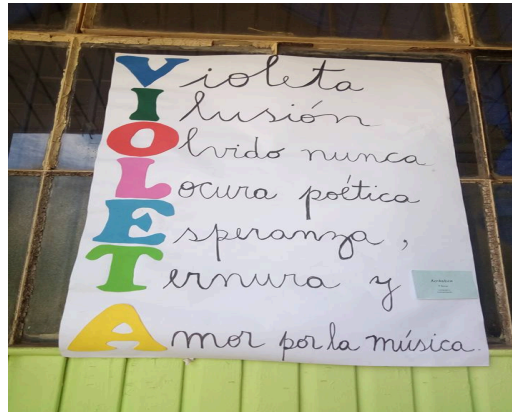 Violeta
Ilusión
Olvido nunca
Locura poética
Esperanza,
Ternura y
Amor por la música.